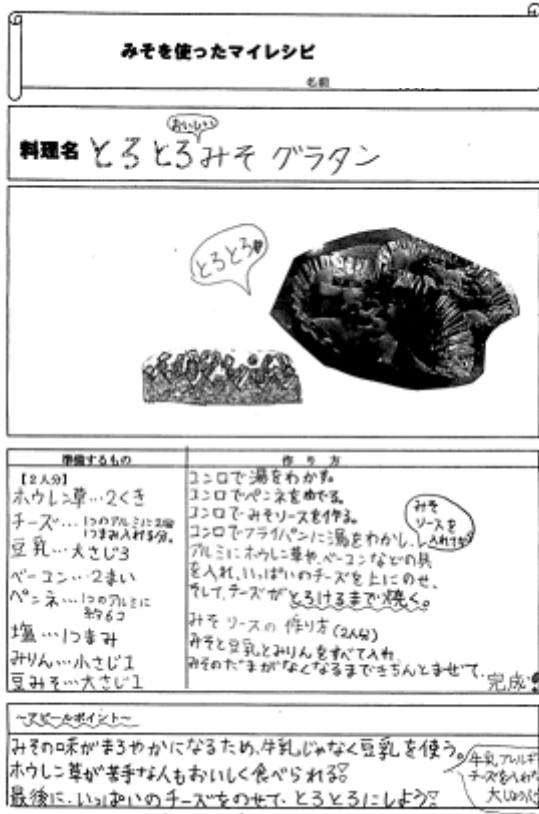 みそを使ったマイレシピ
名前
おいしい
料理名 とろとろみそグラタン
とろとろ
準備するもの
【2人分】
ホウレン草…2くき
チーズ…1つのアルミに2回
つまみ入れる分。
豆乳…大さじ3
ベーコン…2まい
ペンネ…1つのアルミに
約6コ
塩…1つまみ
みりん…小さじ1
豆みそ…大さじ1
作り方
コンロで湯をわかす。
コンロでペンネをゆでる。
コンロでみそソースを作る。
コンロでフライパンに湯をわかし、
みそ
ソースを
アルミにホウレン草や、ベーコンなどの具
を入れ、いっぱいのチーズを上にのせ、
そして、チーズがとろけるまで焼く。
みそソースの作り方(2人分)
みそと豆乳とみりんをすべて入れ
みそのだまがなくなるまできちんとまぜて、
完成
~アピールポイント~
みその味がまろやかになるため、牛乳じゃなく豆乳を使う。
ホウレン草が苦手な人もおいしく食べられる
最後に、いっぱいのチーズをのせて、とろとろにしよう
牛乳アレルギ
チーズを入れ
大じょうぶ